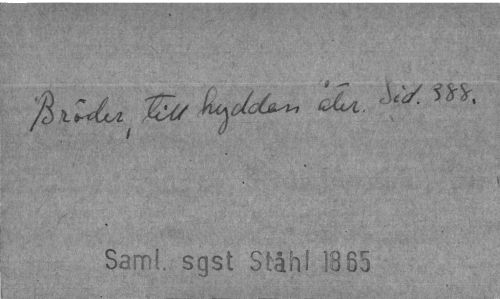 Bröder, till hyddan åter. Sid. 388.
Saml. sgst Ståhl 1865